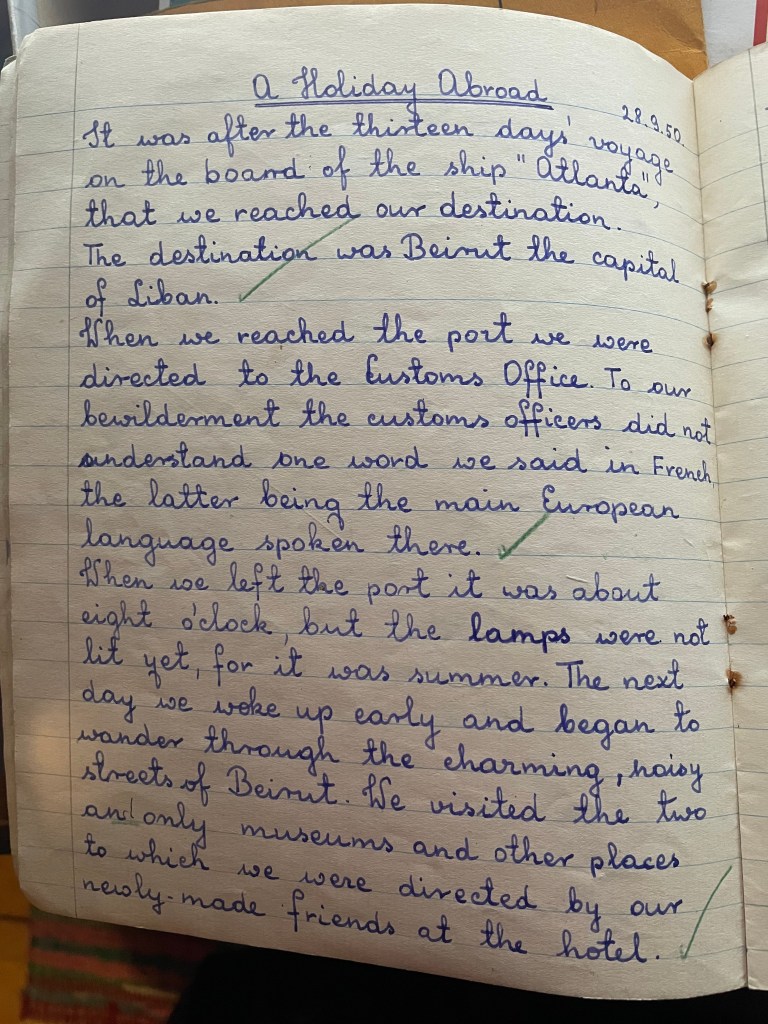 A Holiday Abroad
28.9.50.
It was after the thirteen days' voyage
on the board of the ship "Atlanta",
that we reached our destination.
The destination was Beirut the capital
of Liban.
When we reached the port we were
directed to the Customs Office. To our
bewilderment the customs officers did not
understand one word we said in French,
the latter being the main European
language spoken there.
When we left the port it was about
eight o'clock, but the lamps were not
lit yet, for it was summer. The next
day we woke up early and began to
wander through the charming, noisy
streets of Beirut. We visited the two
and only museums and other places
to which we were directed by our
newly-made friends at the hotel.